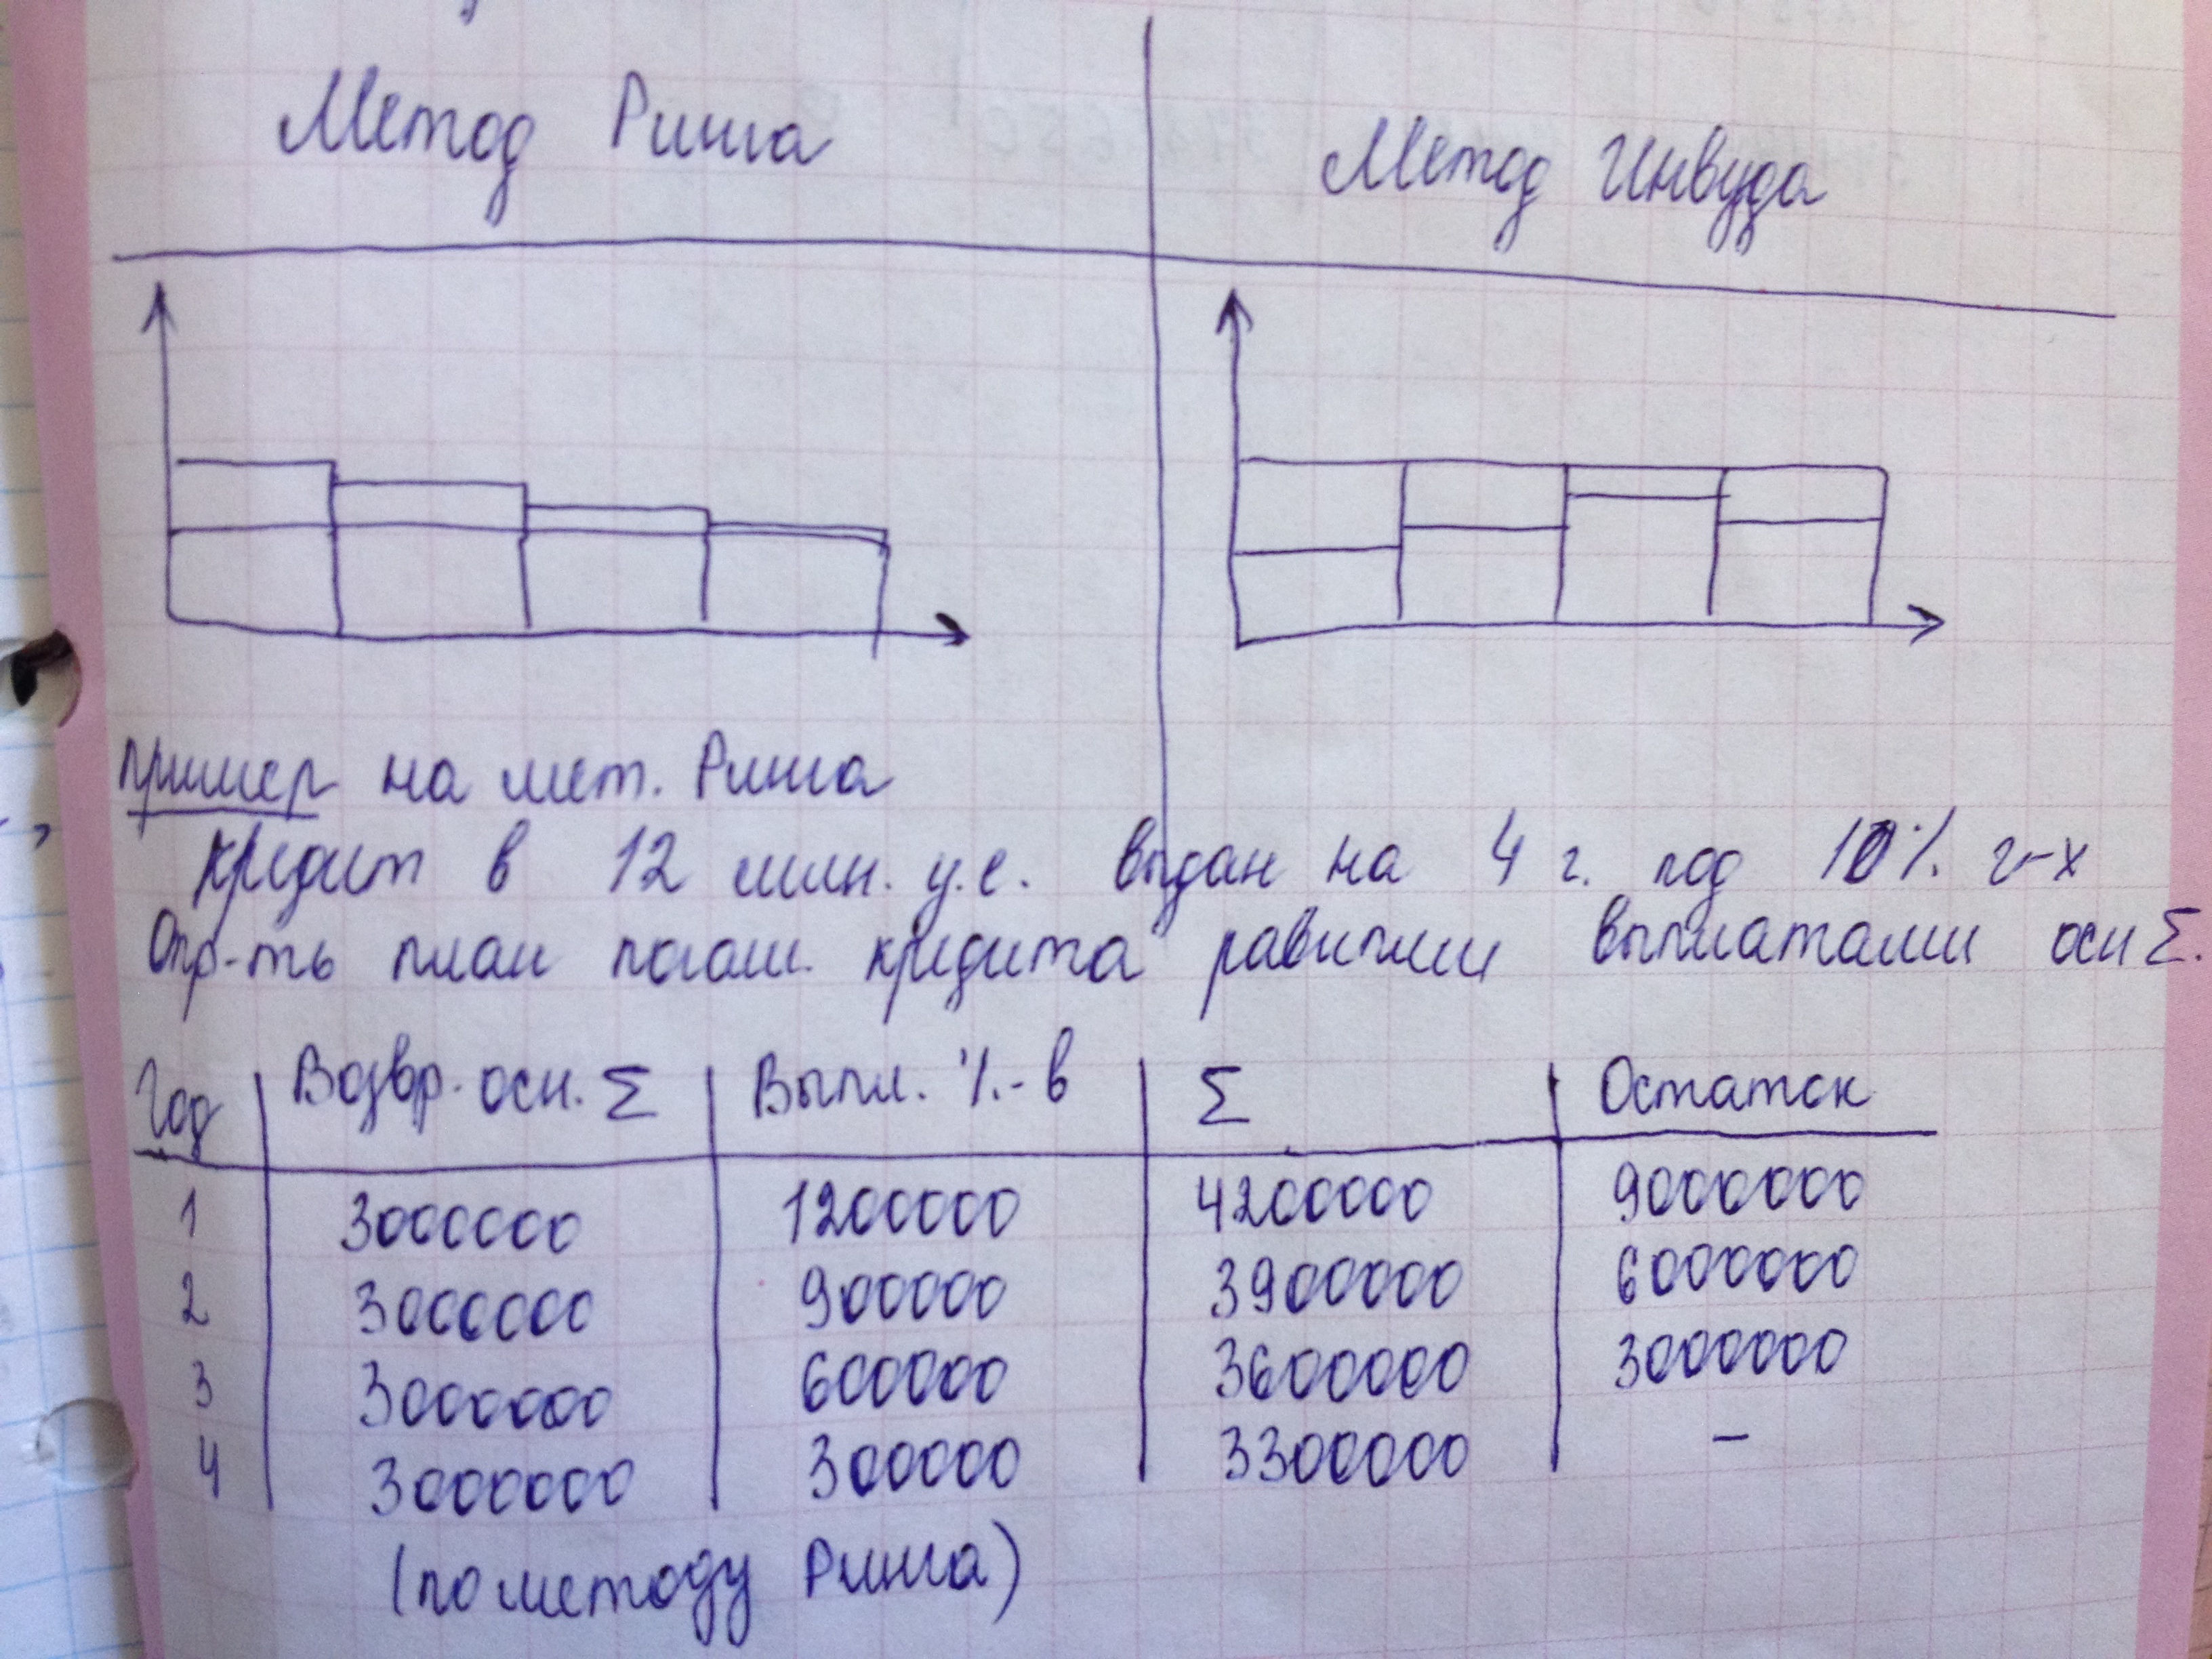 Метод Ринга
Метод Инвуда
Пример на мет. Ринга
Кредит в 12 млн. у.е. выдан на 4 г. под 10% г-х
Опр-ть план погаш. кредита равными выплатами осн Σ.
Год Возвр. осн. Σ Выпл. %-в Σ Остаток
1 3000000 1200000 4200000 9000000
2 3000000 900000 3900000 6000000
3 3000000 600000 3600000 3000000
4 3000000 300000 3300000 –
(по методу Ринга)